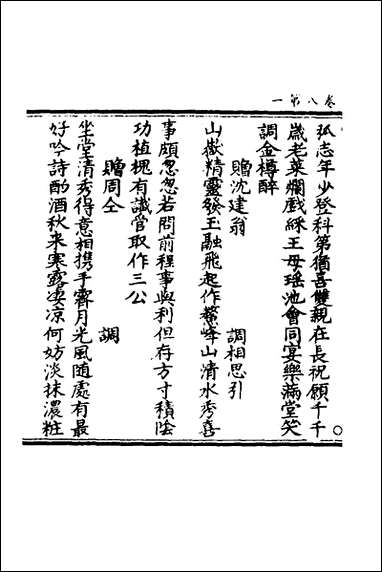 卷八第一
弧志年少登科第猶喜雙親在長祝願千千
歲老萊斕戲綵王母瑤池會同宴樂滿堂笑
調金樽醉
贈沈建翁　調相思引
山嶽精靈發玉融飛起作鰲峰山清水秀喜
事頗忽忽若問前程事與利但存方寸積陰
功植槐有識管取作三公
贈周仝　調
坐堂清秀得意相携手霽月光風隨處有最
好吟詩酌酒秋來寒露凄凉何妨淡抹濃粧